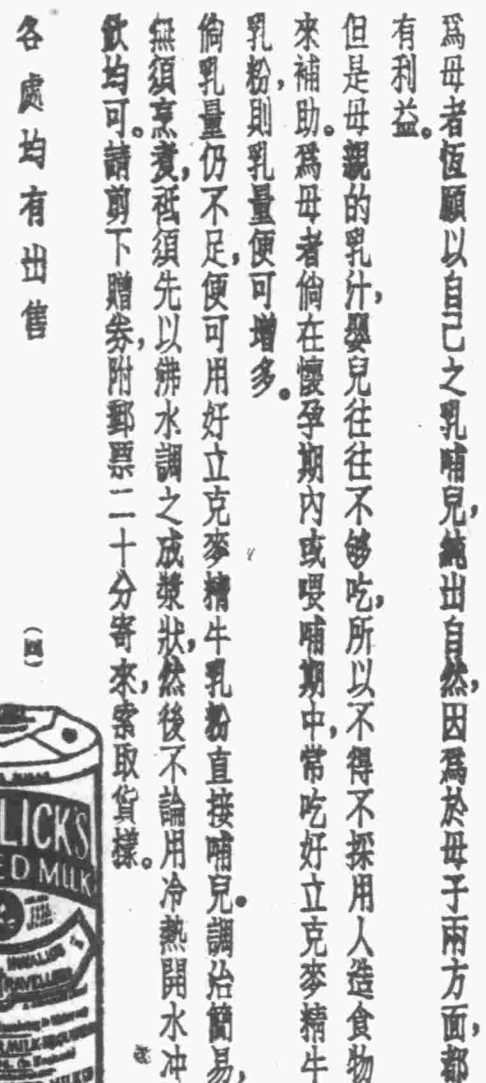 爲母者恆願以自己之乳哺兒，純出自然，因爲於母子兩方面，都
有利益。
但是母親的乳汁，嬰兒往往不够吃，所以不得不採用人造食物
來補助。爲母者倘在懷孕期內或喂哺期中，常吃好立克麥精牛
乳粉，則乳量便可增多。
倘乳量仍不足，便可用好立克麥精牛乳粉直接哺兒。調治簡易，
無須烹煑，祗須先以沸水調之成漿狀，然後不論用冷熱開水冲
飲均可。請剪下贈券，附郵票二十分寄來，索取貨樣。
各處均有出售
（四）
LICK'S
ED MILK
TRAVELLERS